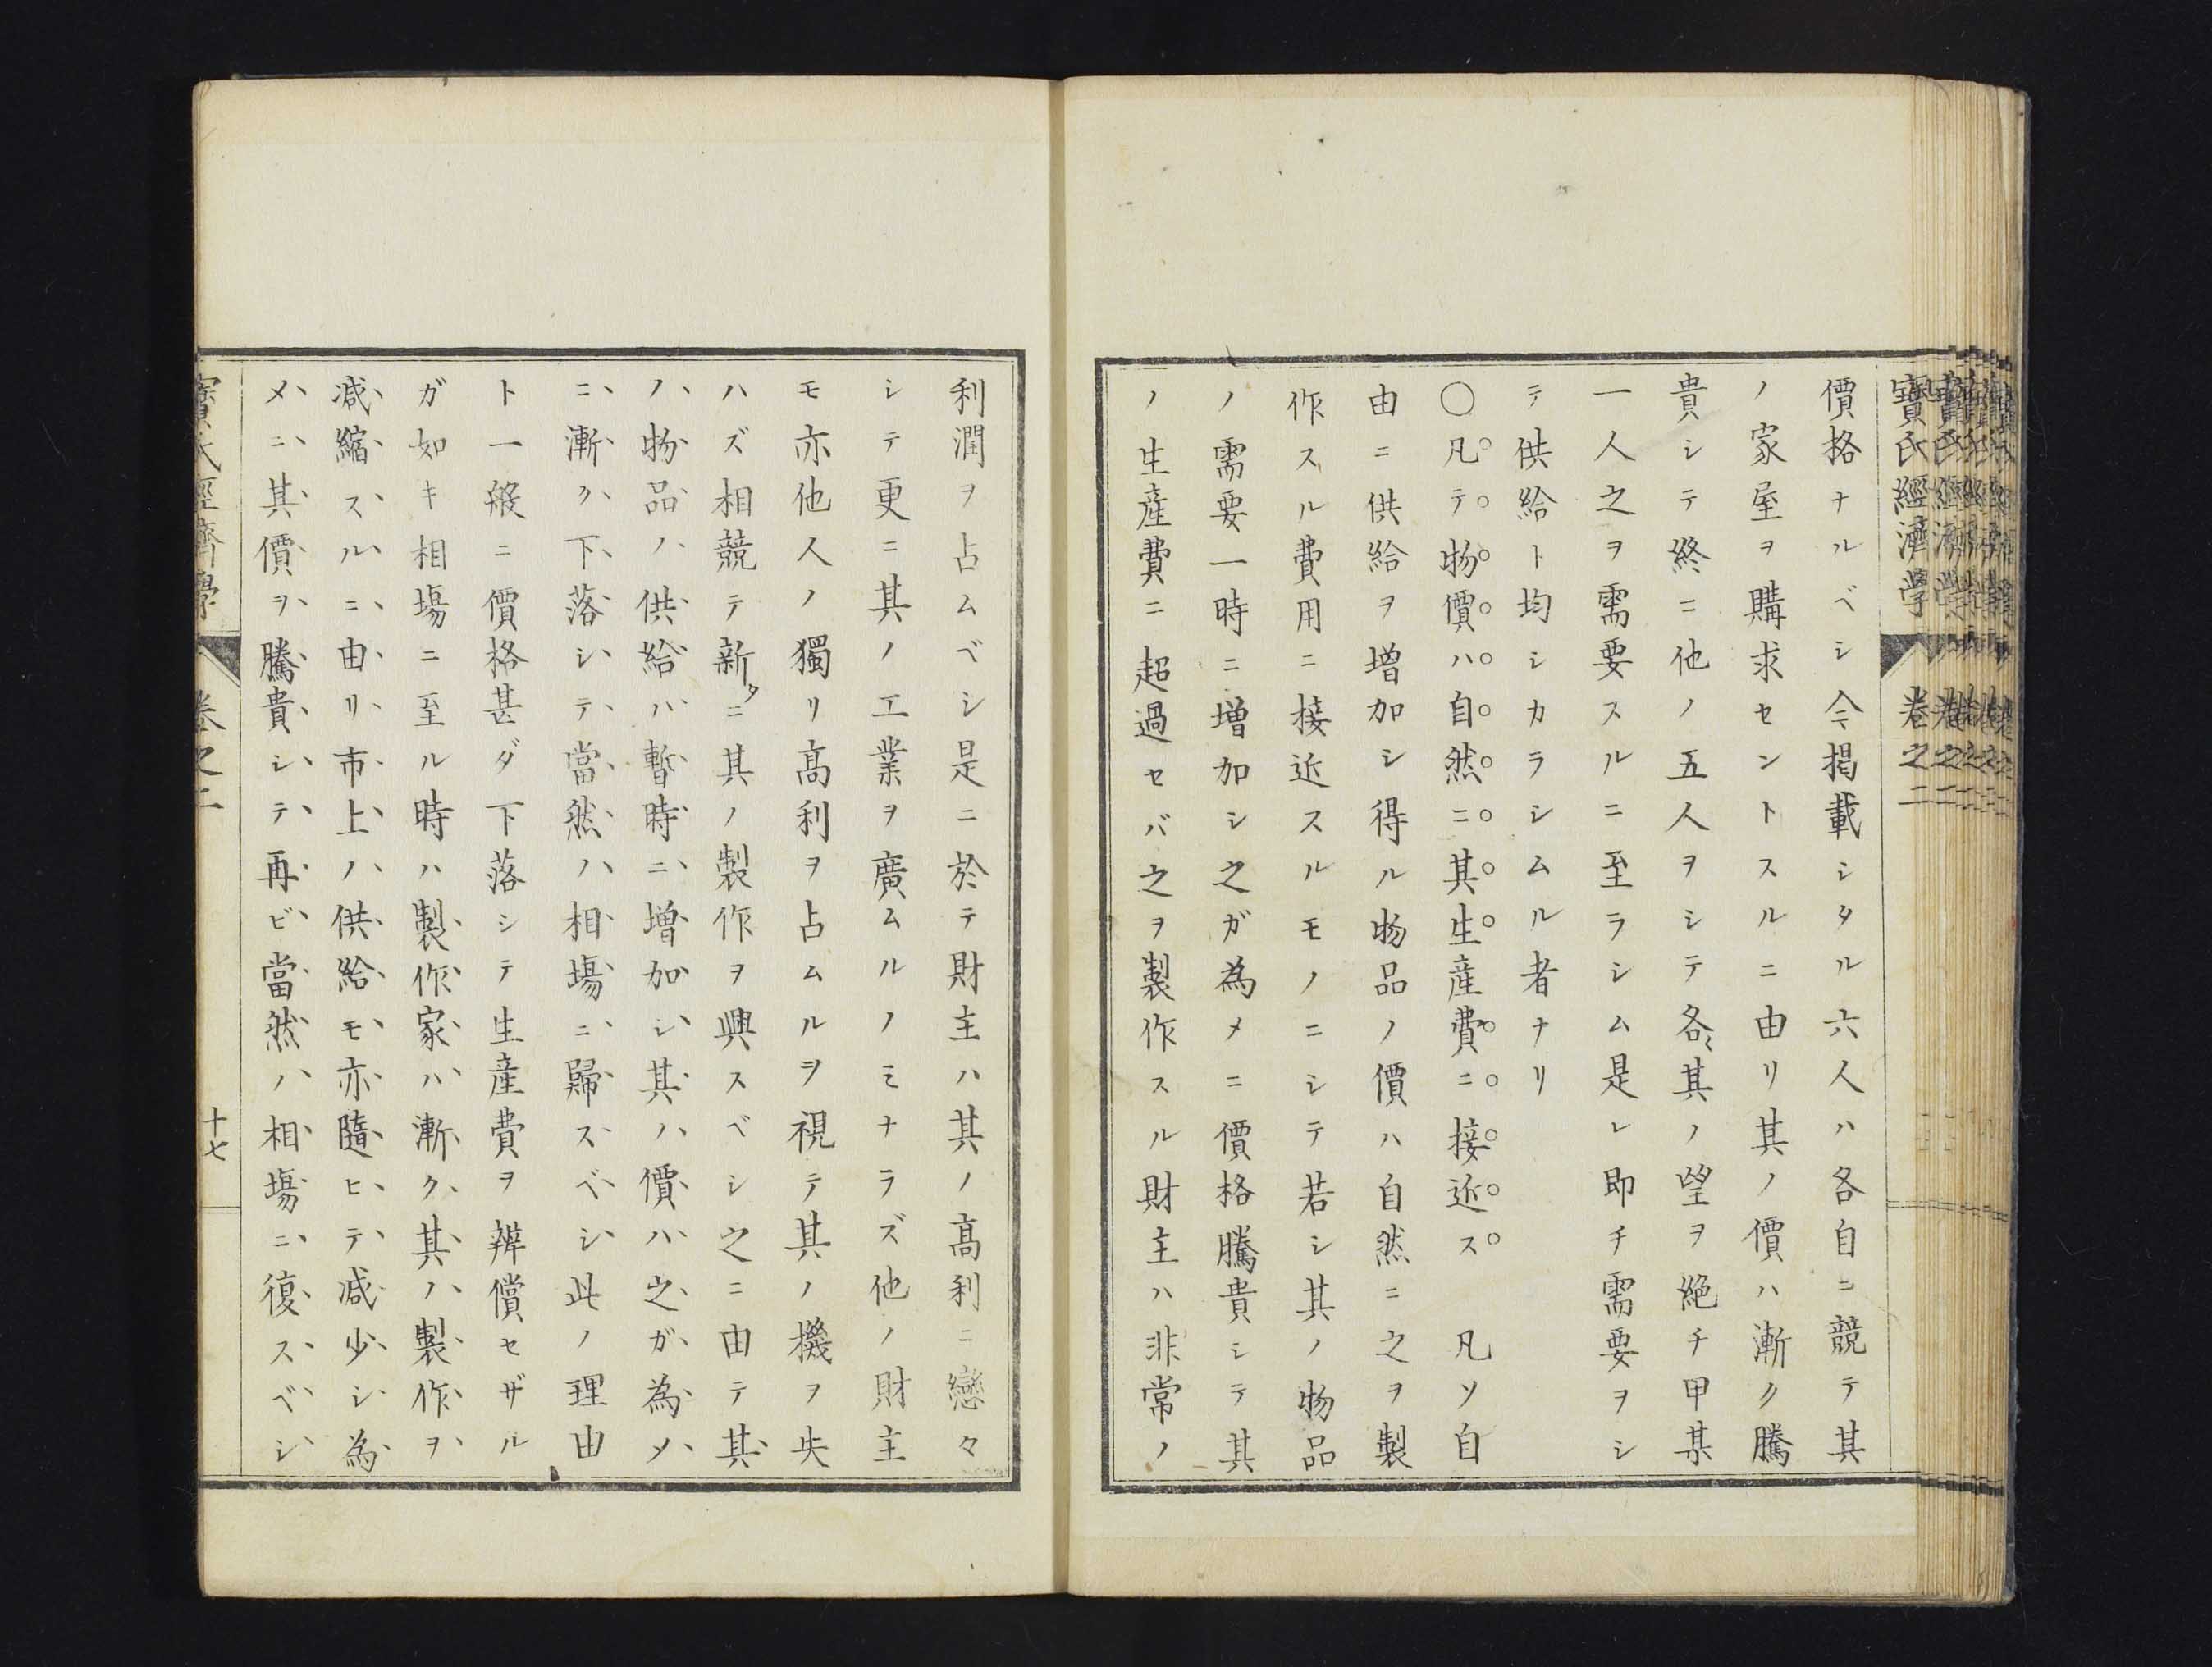 寶氏經濟學 卷之二
價格ナルベシ今マ掲載シタル六人ハ各自ニ競テ其
ノ家屋ヲ購求セントスルニ由リ其ノ價ハ漸ク騰
貴シテ終ニ他ノ五人ヲシテ各〻其ノ望ヲ絶チ甲某
一人之ヲ需要スルニ至ラシム是レ即チ需要ヲシ
テ供給ト均シカラシムル者ナリ
〇凡テ物價ハ自然ニ其生産費ニ接近ス 凡ソ自
由ニ供給ヲ増加シ得ル物品ノ價ハ自然ニ之ヲ製
作スル費用ニ接近スルモノニシテ若シ其ノ物品
ノ需要一時ニ増加シ之ガ為メニ價格騰貴シテ其
ノ生産費ニ超過セバ之ヲ製作スル財主ハ非常ノ
利潤ヲ占ムベシ是ニ於テ財主ハ其ノ髙利ニ戀々
シテ更ニ其ノ工業ヲ廣ムルノミナラズ他ノ財主
モ亦他人ノ獨リ髙利ヲ占ムルヲ視テ其ノ機ヲ失
ハズ相競テ新タニ其ノ製作ヲ興スベシ之ニ由テ其
ノ物品ノ供給ハ暫時ニ増加シ其ノ價ハ之ガ為メ
ニ漸ク下落シテ當然ノ相場ニ歸スベシ此ノ理由
ト一般ニ價格甚ダ下落シテ生産費ヲ辨償セザル
ガ如キ相場ニ至ル時ハ製作家ハ漸ク其ノ製作ヲ
減縮スルニ由リ市上ノ供給モ亦隨ヒテ減少シ為
メニ其價ヲ騰貴シテ再ビ當然ノ相場ニ復スベシ
寶氏經濟學 卷之二 十七